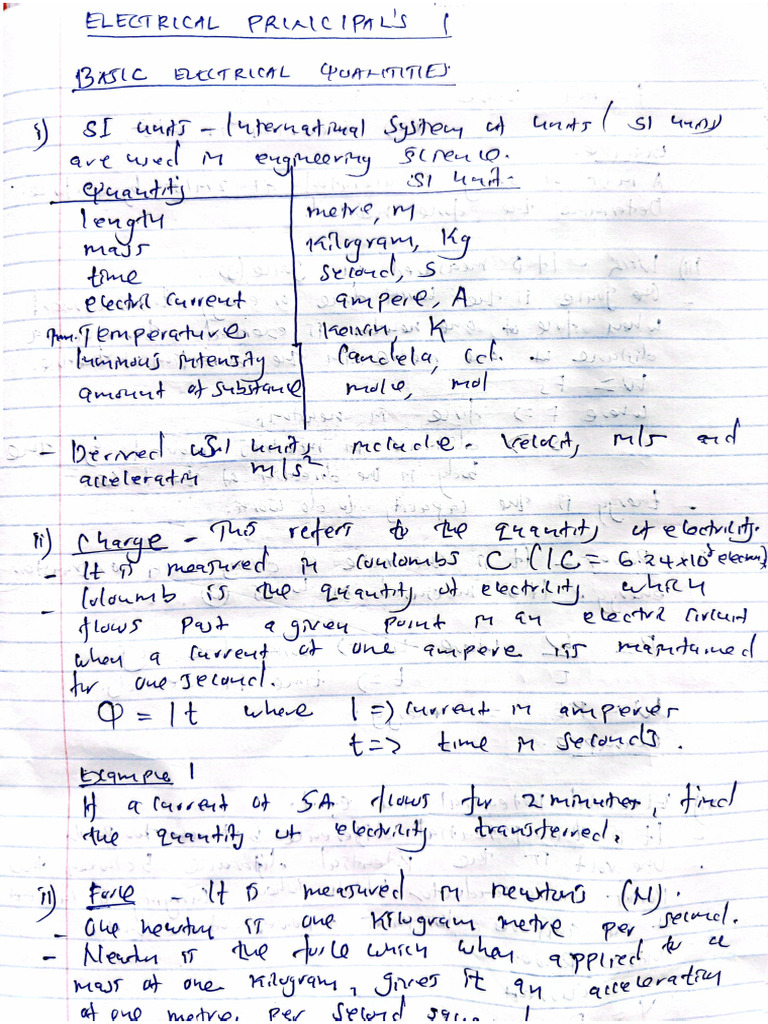 ELECTRICAL PRINCIPAL'S 1
BASIC ELECTRICAL QUANTITIES
i) SI units - International System of units (SI units)
are used in engineering science.
Quantity SI unit.
length metre, m
mass kilogram, Kg
time second, s
electric current ampere, A
Temperature Kelvin, K
luminous intensity Candela, cd.
amount of substance mole, mol
- Derived SI units include - Velocity, m/s and
acceleration m/s²
ii) Charge - This refers to the quantity of electricity.
- It is measured in coulombs C (1C = 6.24x10 electrons)
- Coloumb is the quantity of electricity which
flows past a given point in an electric circuit
when a current of one ampere is maintained
for one second.
Q = It where I => current in amperes
t => time in seconds.
Example 1
If a current of 5A flows for 2 minutes, find
the quantity of electricity transferred.
ii) Force - It is measured in newton's (N).
- One newton is one kilogram metre per second.
- Newton is the force which when applied to a
mass of one kilogram, gives it an acceleration
of one metre per second